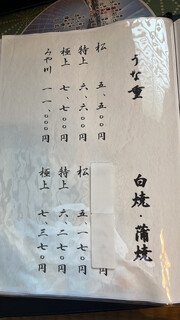 うな重
松 五、五〇〇円
特上 六、六〇〇円
極上 七、七〇〇円
みや川 一一、〇〇〇円
白焼・蒲焼
円
松 五、一七〇円
特上 六、二七〇円
極上 七、三七〇円